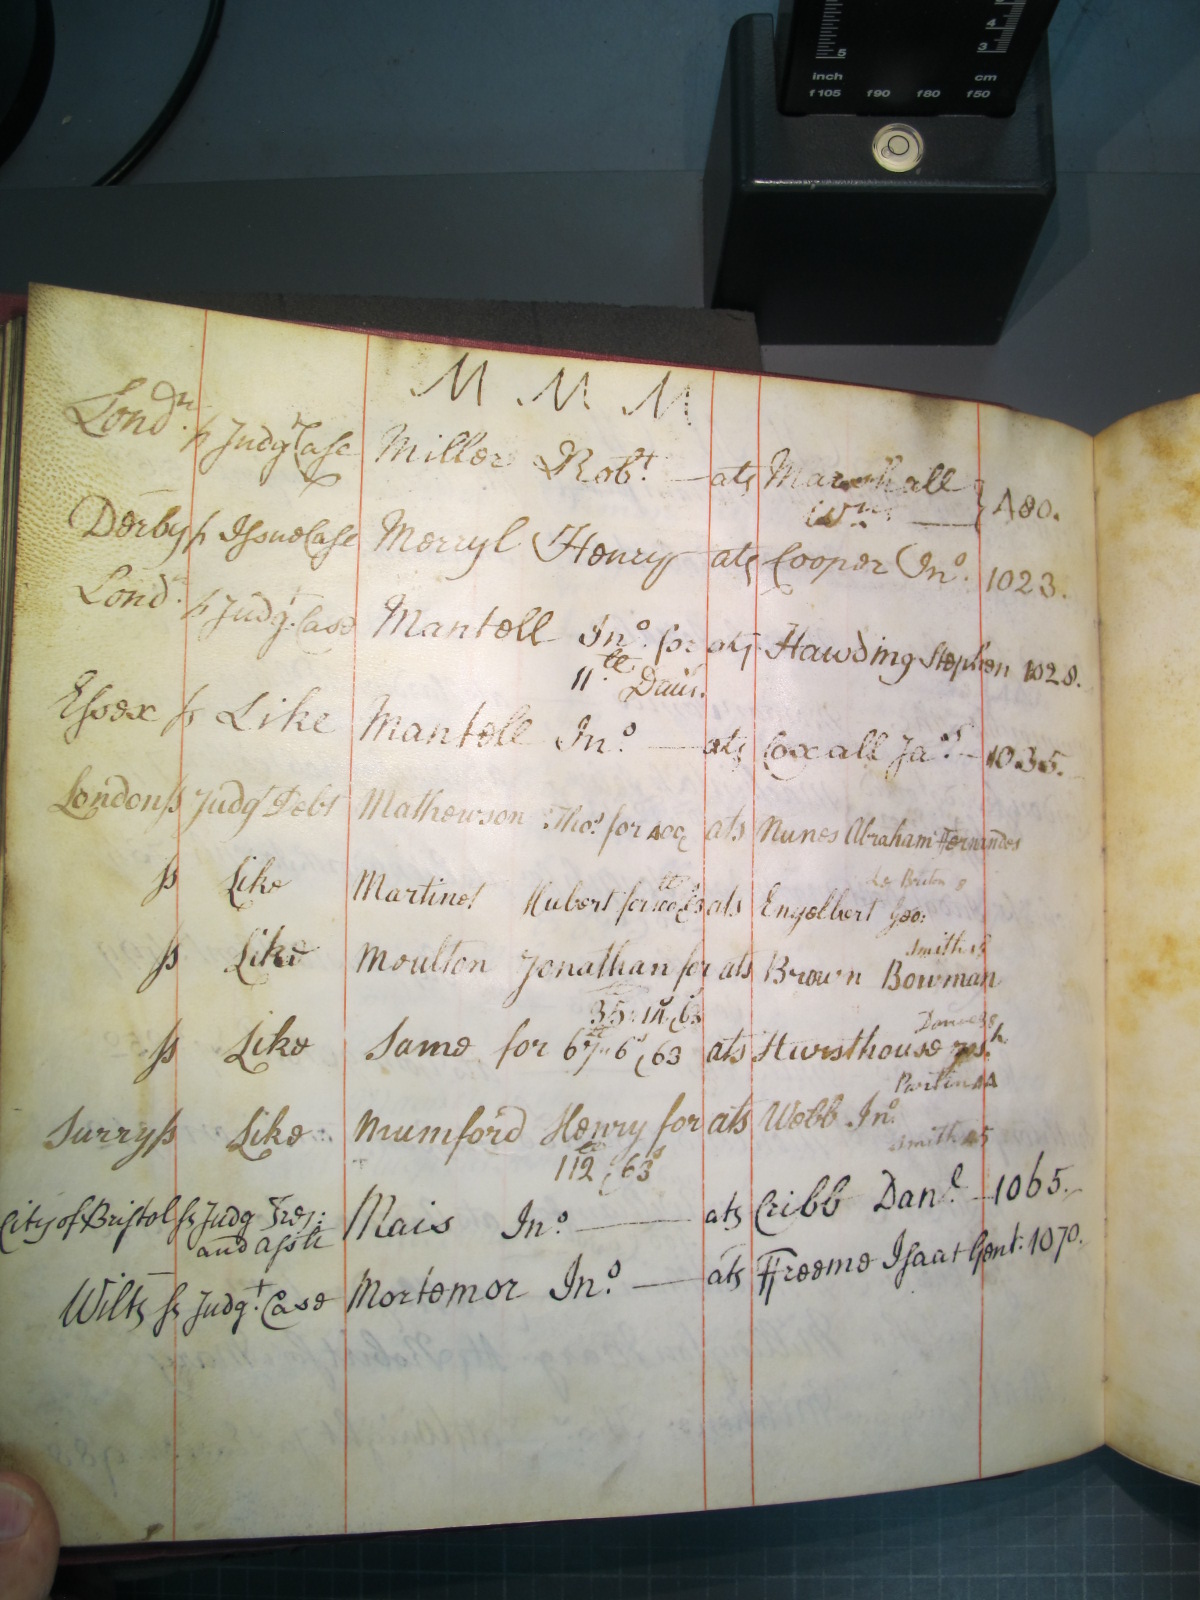 5 4 3
inch cm
f105 f90 f80 f50
M M M
Lond.n ss Judg.t Case Miller Rob.t — ats Marshall W.m — } 480.
Derby ss Issue Case Merryl Henry ats Cooper Jn.o 1023.
Lond.n ss Judg.t Case Mantell Jn.o for ats Hawding Stephen 1028.
11.le Dam.
Essex ss Like Mantell Jn.o — ats Coxall Ja.s — 1035.
London ss Judg.t Debt Mathewson Tho.s for 400 ats Nunes Abraham Fernandes
Le Breton 8
ss Like Martinet Hubert for ats Engelbert Geo:
Smith
ss Like Moulton Jonathan for ats Brown Bowman
35: 14 63
ss Like Same for 67le 6s 63 ats Hursthouse Jos.h
Surry ss Like Mumford Henry for ats Webb Jn.o
112le 63s Smith 45
City of Bristol ss Judg Tres: and Ass.lt Mais Jn.o — ats Cribb Dan.l — 1065.
Wilts ss Judg.t Case Mortemor Jn.o — ats Ffreeme Isaac Gent: 1070.